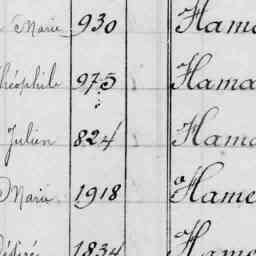 Marie 930 Hame
héophile 975 Hama
Julien 824 Hamo
Marie 1918 Hame
1834 Hame